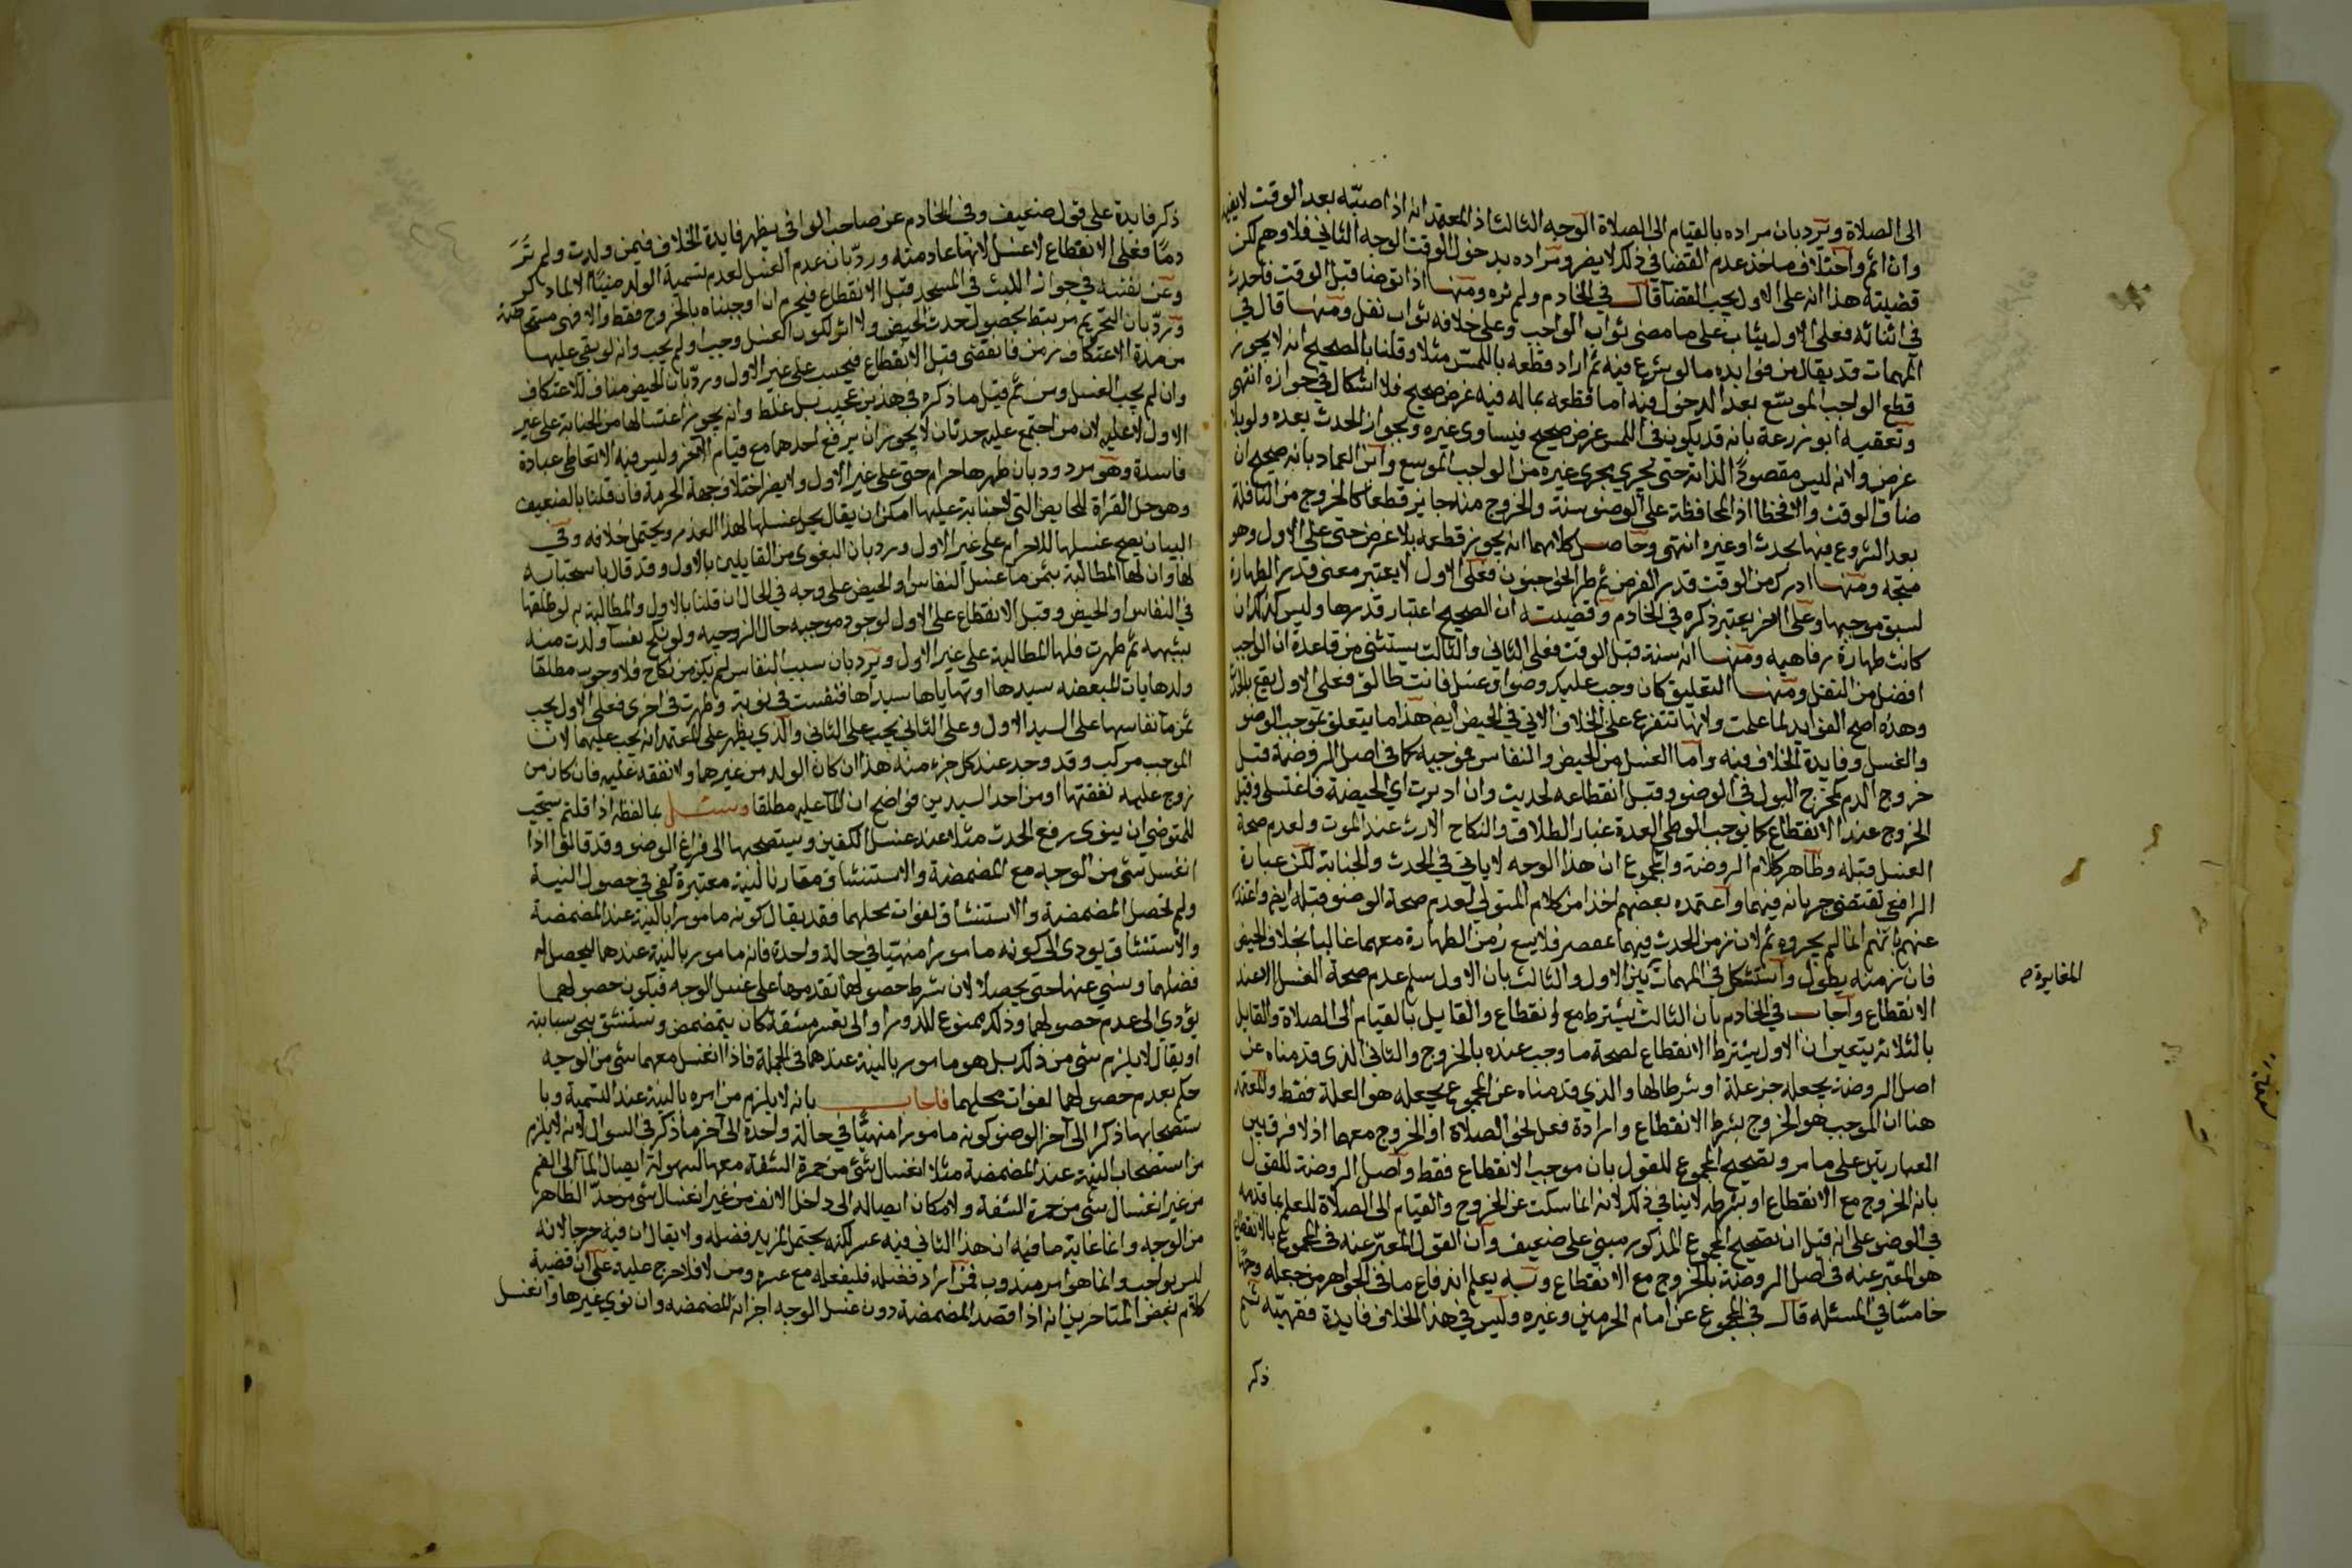 الى الصلاة ويرد بان مراده بالقيام الى الصلاة الوجه الثالث اذ المعتمد انه اذا صبّه بعد الوقت لا يفيد
وان اثم واختلاف ماخذ عدم القضا في ذلك لا يضر ومراده بدخول الوقت الوجه الثاني فلا وهم لكن
قضيته هذا انه على الاول يجب القضا قال في الخادم ولم نره ومنها اذا توضا قبل الوقت فاحدث
في اثنائه فعلى الاول يثاب على ما مضى ثواب الواجب وعلى خلافه ثواب نفل ومنها قال في
المهمات قد يقال من فوايده ما لو شرع فيه ثم اراد قطعه باللمس مثلا وقلنا بالصحيح انه لا يجوز
قطع الواجب الموسّع بعد الدخول فيه اما قطعه بما له فيه غرض صحيح فلا اشكال في جوازه انتهى
وتعقبه ابو زرعة بانه قد يكون في اللمس غرض صحيح فيساوى غيره وبجواز الحدث بعده ولو بلا
غرض ولانه ليس مقصودًا لذاته حتى يجري مجرى غيره من الواجب الموسع وابن العماد بانه صحيح ان
ضاق الوقت والا فخطا اذ المحافظة على الوضو سنة والخروج منه جايز قطعا كالخروج من النافلة
بعد الشروع فيها بحدث او غيره انتهى وحاصل كلامهما انه يجوز قطعه بلا غرض حتى على الاول وهو
متجه ومنها ادرك من الوقت قدر الفرض ثم طرا نحو جنون فعلى الاول لا يعتبر معنى قدر الطهارة
لسبق موجبها وعلى الاخر يعتبر ذكره في الخادم وقضيته ان الصحيح اعتبار قدرها وليس كذلك ان
كانت طهارة رفاهيه ومنها انه سنة قبل الوقت فعلى الثاني والثالث يستثنى من قاعدة ان الواجب
افضل من النفل ومنها التعليق كان وجب عليك وضوا وغسل فانت طالق فعلى الاول يقع بالحدث
وهذه اصح الفوايد لما علمت ولانها تتفرع على الخلاف الاتي في الحيض ايضا هذا ما يتعلق بموجب الوضو
والغسل وفايدة الخلاف فيه واما الغسل من الحيض والنفاس فموجبه كما في اصل الروضة قبل
خروج الدم كمخرج البول في الوضو وقيل انقطاعه لحديث وان ادبرت اي الحيضة فاغتسلى وقيل
الخروج عند الانقطاع كما يوجب الوطى العدة عند الطلاق والنكاح الارث عند الموت ولعدم صحة
الغسل قبله وظاهر كلام الروضة والمجموع ان هذا الوجه لا ياتي في الحدث والجنابة لكن عبارة
الرافعي تقتضي جريانه فيهما واعتمده بعضهم اخذا من كلام المتولي لعدم صحة الوضو قبله ايضا واعتذر
عنهم بانهم انما لم يجروه ثم لان زمن الحدث فيهما عقصر فلا يسع زمن الطهارة معهما غالبا بخلاف الحيض
فان زمنه يطول واستشكل في المهمات بين الاول والثالث بان الاول سلم عدم صحة الغسل الا عند
المغايرة م
الانقطاع واجاب في الخادم بان الثالث يشترط مع الانقطاع والقايل بالقيام الى الصلاة والقايل
بالثلاثه يتعين ان الاول يشترط الانقطاع لصحة ما وجب عنده بالخروج والثاني الذي قدمناه عن
اصل الروضه يجعله جز علة او شرطا لها والذي قدمناه عن المجموع يجعله هو العلة فقط والمعتمد
هنا ان الموجب هو الخروج بشرط الانقطاع وارادة فعل نحو الصلاة او الخروج معهما اذ لا فرق بين
العبارتين على ما مر وتصحيح المجموع للقول بان موجب الانقطاع فقط واصل الروضة للقول
بانه الخروج مع الانقطاع او بشرطه لا ينافي ذلك لانه انما سكت عن الخروج والقيام الى الصلاة للعلم بما قدمه
في الوضو على انه قيل ان تصحيح المجموع المذكور مبني على ضعيف وان القول المعبّر عنه في المجموع بالانقطاع
هو المعبّر عنه في اصل الروضة بالخروج مع الانقطاع وبه يعلم اندفاع ما في الجواهر من جعله وجهًا
خامسًا في المسئله قال في المجموع عن امام الحرمين وغيره وليس في هذا الخلاف فايدة فقهيّه ثم
ذكر
ذكر فايدة على قول ضعيف وفي الخادم عن صاحب الوافي يظهر فايدة الخلاف فيمن ولدت ولم تَرَ
دمًا فعلى الانقطاع لا غسل لانها عادمته وردّ بان عدم الغسل لعدم تسمية الولد منيًا الا لما ذكر
وعن نفسه في جواز اللبث في المسجد قبل الانقطاع فيحرم ان اوجبناه بالخروج فقط والا فهي مستحاضة
وردّ بان التحريم مرتبط بحصول حدث الحيض ولا اثر لكون الغسل وجب او لم يجب وانه لو بقي عليها
من مدة الاعتكاف زمن فانقضى قبل الانقطاع فيحسب على غير الاول وردّ بان الحيض مناف للاعتكاف
وان لم يجب الغسل ومن ثم قيل ما ذكره في هذين عجيب بل غلط وانه يجوز اغتسالها من الجنابة على غير
الاول لا عليه لان من اجتمع عليه حدثان لا يجوز ان يرفع احدهما مع قيام الاخر وليس فيه الا تعاطى عبادة
فاسدة وهو مردود بان طهرها حرام حتى على غير الاول ولا يضر اختلاف جهة الحرمة فان قلنا بالضعيف
وهو حل القراة للحايض التي لا جنابة عليها امكن ان يقال بحل غسلها لهذا العذر ويحتمل خلافه وفي
البيان يصح غسلها للاحرام على غير الاول ورد بان البغوى من القايلين بالاول وقد قال باستحبابه
لها وان لها المطالبة بثمن ما غسل النفاس او الحيض على وجه في الحال ان قلنا بالاول والمطالبة به لو طلقها
في النفاس او الحيض وقبل الانقطاع على الاول لوجود موجبه حال الزوجيه ولو نكح نفسا ولدت منه
بشبهه ثم طهرت فلها المطالبة على غير الاول ويرد بان سبب النفاس لم يكن من نكاح فلا وجوب مطلقا
ولدهايات المبعضه سيدها او تهاياها سيداها فنفست في نوبة وطهرت في اخرى فعلى الاول يجب
ثمن ما نفاسها على السيد الاول وعلى الثاني يجب على الثاني والذي يظهر على المعتمد انه يجب عليهما لان
الموجب مركب وقد وجد عند كل جزء منه هذا ان كان الولد من غيرهما ولا نفقه عليه فان كان من
زوج عليه نفقتها او من احد السيدين فواضح ان الما عليه مطلقا وسئل بما لفظه اذا قلتم يستحب
للمتوضي ان ينوى رفع الحدث مثلا عند غسل الكفين ويستصحبها الى فراغ الوضو وقد قالوا اذا
انغسل شي من الوجه مع المضمضة والاستنشاق مقارنا لنية معتبرة كفى في حصول النية
ولم تحصل المضمضة والاستنشاق لفوات محلهما فقد يقال كونه مامورا بالنية عند المضمضة
والاستنشاق يودى الى كونه مامورا منهيّا في حالة واحدة فانه مامور بالنية عندهما ليحصل له
فضلهما ونهى عنها حتى يحصلا لان شرط حصولهما تقدمهما على غسل الوجه فيكون حصولهما
يؤدى الى عدم حصولهما وذلك ممنوع للدور او الى تعسر مشقة كان يتمضمض ويستنشق بنحو سبابته
او يقال لا يلزم شى من ذلك بل هو مامور بالنية عندهما في الجملة فاذا انغسل معهما شى من الوجه
حكم بعدم حصولهما لفوات محلهما فاجاب بانه لا يلزم من امره بالنية عند التسمية وبا
ستصحابها ذكرا الى آخر الوضو كونه مامورا منهيًّا في حالة واحدة الى آخر ما ذكر في السوال لانه لا يلزم
من استصحاب النية عند المضمضة مثلا انغسال شئ من حمرة الشفة معها لسهولة ايصال الما الى الفم
من غير انغسال شى من حمرة الشفة ولامكان ايصاله الى داخل الانف من غير انغسال شى من حدّ الظاهر
من الوجه وانما غاية ما فيه ان هذا الثاني فيه عسر لكنه يحتمل لمزيد فضله ولا يقال ان فيه حرجا لانه
ليس بواجب وانما هو امر مندوب فمن اراد فضله فليفعله مع عسره ومن لا فلا حرج عليه على ان قضية
كلام بعض المتاخرين انه اذا قصد المضمضة دون غسل الوجه اجزاته المضمضه وان نوى غيرها وانغسل